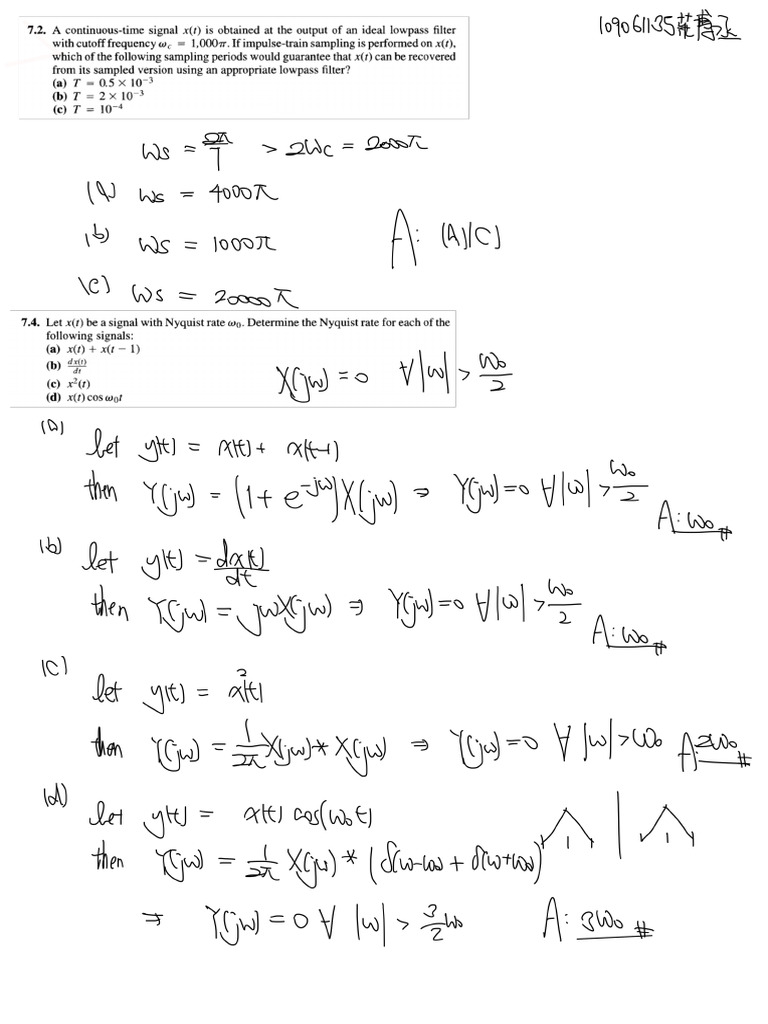 7.2. A continuous-time signal x(t) is obtained at the output of an ideal lowpass filter
with cutoff frequency ωc = 1,000π. If impulse-train sampling is performed on x(t),
which of the following sampling periods would guarantee that x(t) can be recovered
from its sampled version using an appropriate lowpass filter?
(a) T = 0.5 × 10⁻³
(b) T = 2 × 10⁻³
(c) T = 10⁻⁴
109061135
ωs = 2π/T > 2ωc = 2000π
(A) ωs = 4000π
(b) ωs = 1000π
(c) ωs = 20000π
A: (A)(C)
7.4. Let x(t) be a signal with Nyquist rate ω₀. Determine the Nyquist rate for each of the
following signals:
(a) x(t) + x(t − 1)
(b) dx(t)/dt
(c) x²(t)
(d) x(t) cos ω₀t
X(jω) = 0 ∀|ω| > ω₀/2
(a)
let y(t) = x(t) + x(t-1)
then Y(jω) = (1 + e^-jω)X(jω) ⇒ Y(jω) = 0 ∀|ω| > ω₀/2
A: ω₀ #
(b) let y(t) = dx(t)/dt
then Y(jω) = jωX(jω) ⇒ Y(jω) = 0 ∀|ω| > ω₀/2
A: ω₀ #
(c)
let y(t) = x²(t)
then Y(jω) = 1/2π X(jω) * X(jω) ⇒ Y(jω) = 0 ∀ |ω| > ω₀ A: 2ω₀ #
(d)
let y(t) = x(t) cos(ω₀t)
then Y(jω) = 1/2π X(jω) * (δ(ω-ω₀ + δ(ω+ω₀)
⇒ Y(jω) = 0 ∀ |ω| > 3/2 ω₀ A: 3ω₀ #